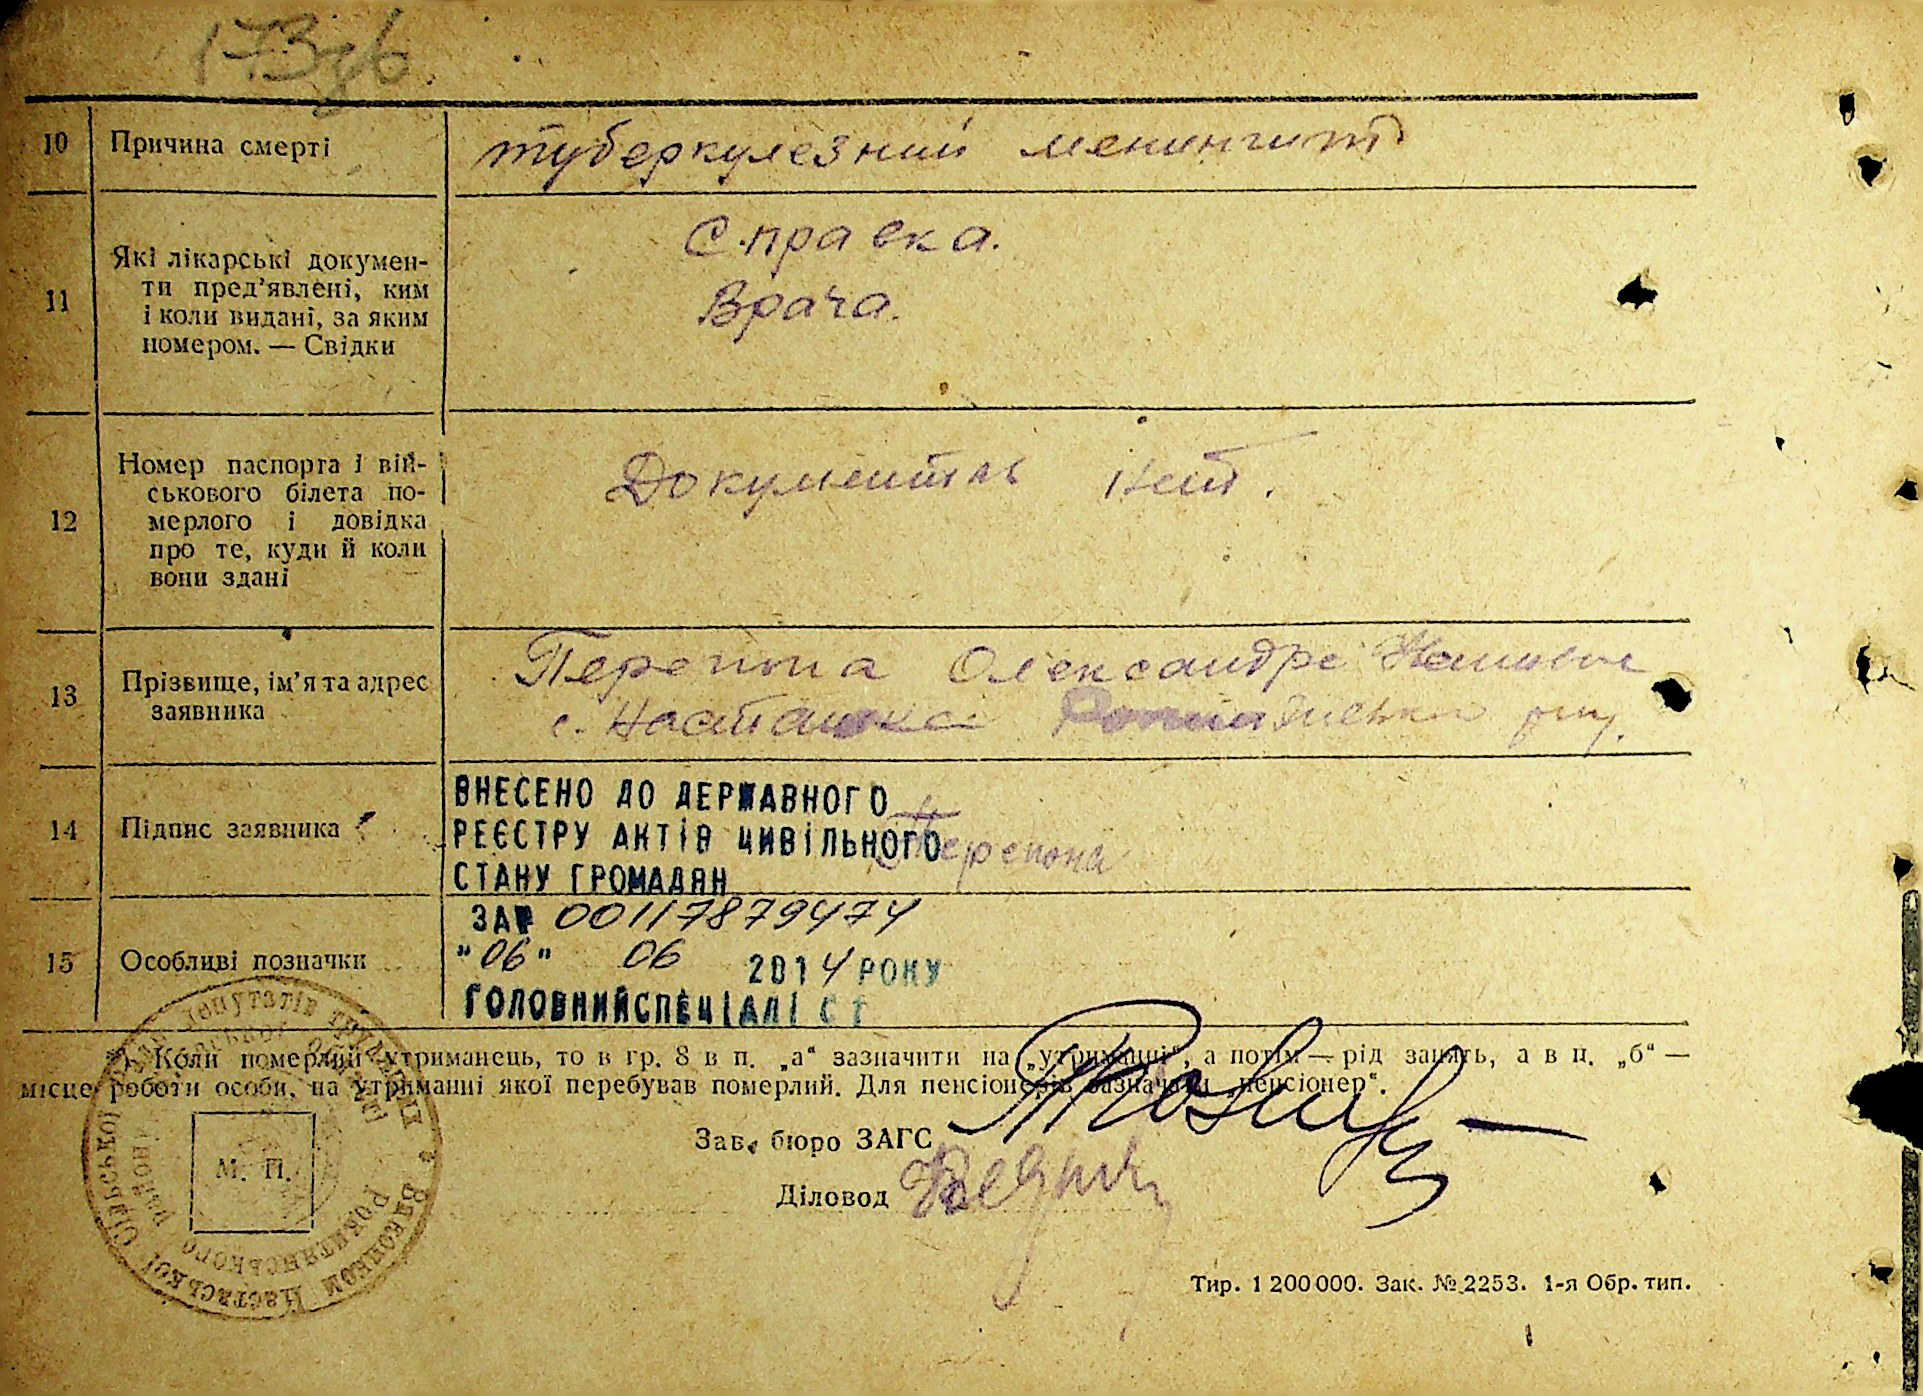 173
10 Причина смерті туберкулезний менингит
11 Які лікарські докумен-
ти пред'явлені, ким
і коли видані, за яким
номером. — Свідки
Справка.
Врача.
12 Номер паспорта і вій-
ськового білета по-
мерлого і довідка
про те, куди й коли
вони здані
Документов нет.
13 Прізвище, ім'я та адрес
заявника
Олександра
с.
14 Підпис заявника
ВНЕСЕНО ДО ДЕРЖАВНОГО
РЕЄСТРУ АКТІВ ЦИВІЛЬНОГО
СТАНУ ГРОМАДЯН
15 Особливі позначки
ЗА № 00117879474
"06" 06 2014 РОКУ
ГОЛОВНИЙ СПЕЦІАЛІСТ
*) Коли померлий утриманець, то в гр. 8 в п. „а“ зазначити на „утриманні“, а потім — рід занять, а в п. „б“ —
місце роботи особи, на утриманні якої перебував померлий. Для пенсіонерів зазначати „пенсіонер“.
Зав. бюро ЗАГС
Діловод
М. П.
Тир. 1 200 000. Зак. № 2253. 1-я Обр. тип.